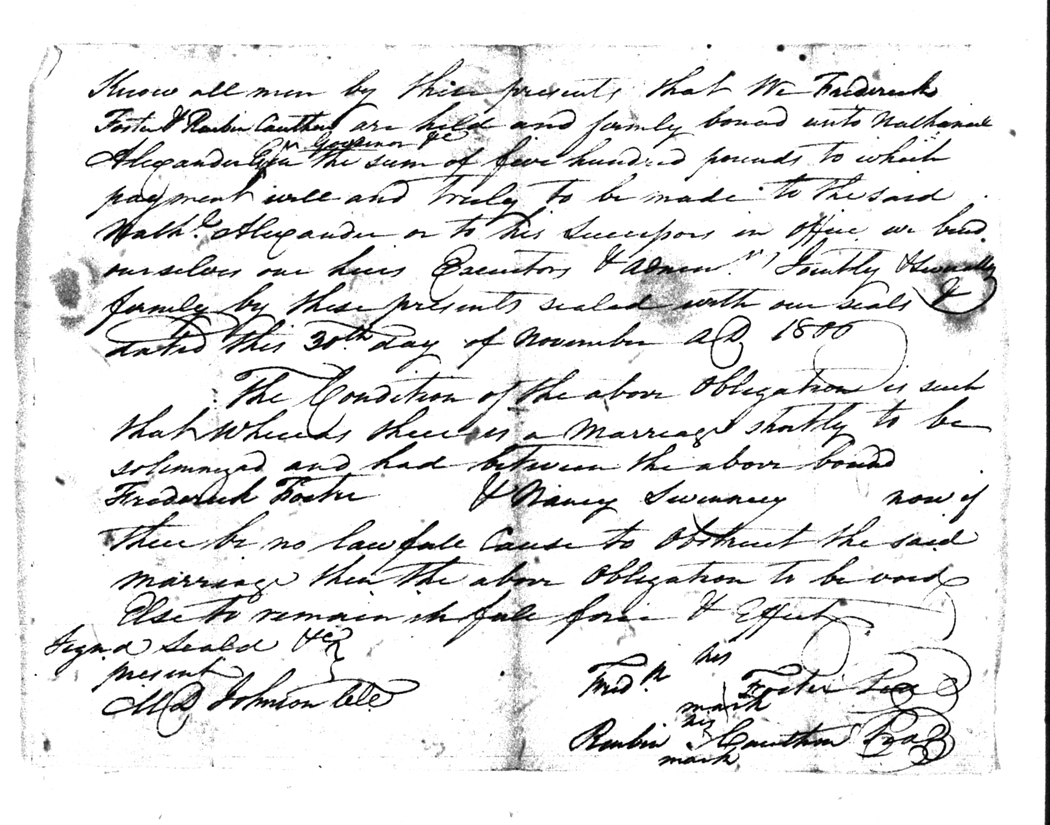 Know all men by these presents that We Frederick
Foster & Reubin Cauthen are held and firmly bound unto Nathaniel
Governor &c
Alexander Esqr in the sum of five hundred pounds to which
payment well and truly to be made to the said
Nathl. Alexander or to his Successors in office we bind
ourselves our heirs Executors & Admen.rs Jointly & Severally
firmly by these presents sealed with our seals &
dated this 30th day of November AD 1806
The Condition of the above Obligation is such
that Whereas there is a Marriage shortly to be
solemnezed and had between the above bound
Frederick Foster & Nancy Swenney now if
there be no lawfull Cause to Obstruct the said
marriage then the above Obligation to be void
Else to remain in full force & Effect
Signd Seald &c
present
M D Johnson
his
Fredk Foster Seal
mark
his
Reubin Cauthon Seal
mark